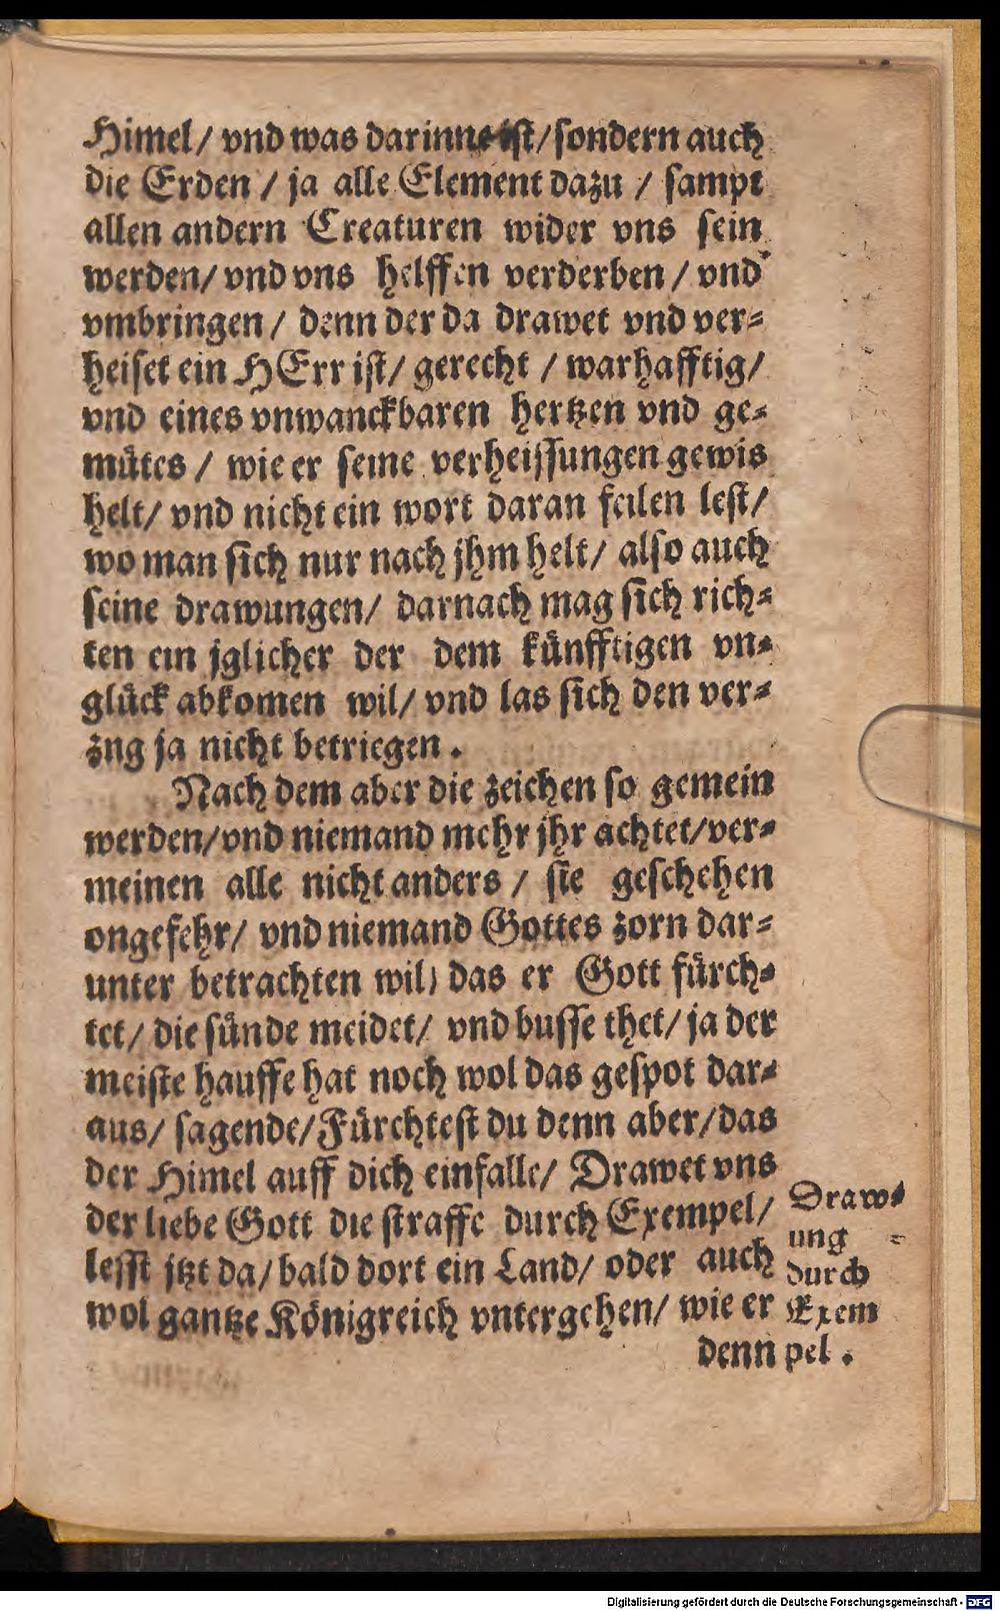 Himel / vnd was darinne ist / sondern auch
die Erden / ja alle Element dazu / sampt
allen andern Creaturen wider vns sein
werden / vnd vns helffen verderben / vnd
vmbringen / denn der da drawet vnd ver⸗
heiset ein HErr ist / gerecht / warhafftig /
vnd eines vnwanckbaren hertzen vnd ge⸗
muͤtes / wie er seine verheissungen gewis
helt / vnd nicht ein wort daran feilen lest /
wo man sich nur nach jhm helt / also auch
seine drawungen / darnach mag sich rich⸗
ten ein jglicher der dem kuͤnfftigen vn⸗
gluͤck abkomen wil / vnd las sich den ver⸗
zng ja nicht betriegen .
Nach dem aber die zeichen so gemein
werden / vnd niemand mehr jhr achtet / ver⸗
meinen alle nicht anders / sie geschehen
ongefehr / vnd niemand Gottes zorn dar⸗
unter betrachten wil) das er Gott fuͤrch⸗
tet / die suͤnde meidet / vnd busse thet / ja der
meiste hauffe hat noch wol das gespot dar⸗
aus / sagende / Fuͤrchtest du denn aber / das
der Himel auff dich einfalle / Drawet vns
der liebe Gott die straffe durch Exempel /
lesst jtzt da / bald dort ein Land / oder auch
wol gantze Koͤnigreich vntergehen / wie er
denn
Draw⸗
ung ⸗
durch
Exem
pel .
Digitalisierung gefördert durch die Deutsche Forschungsgemeinschaft - DFG